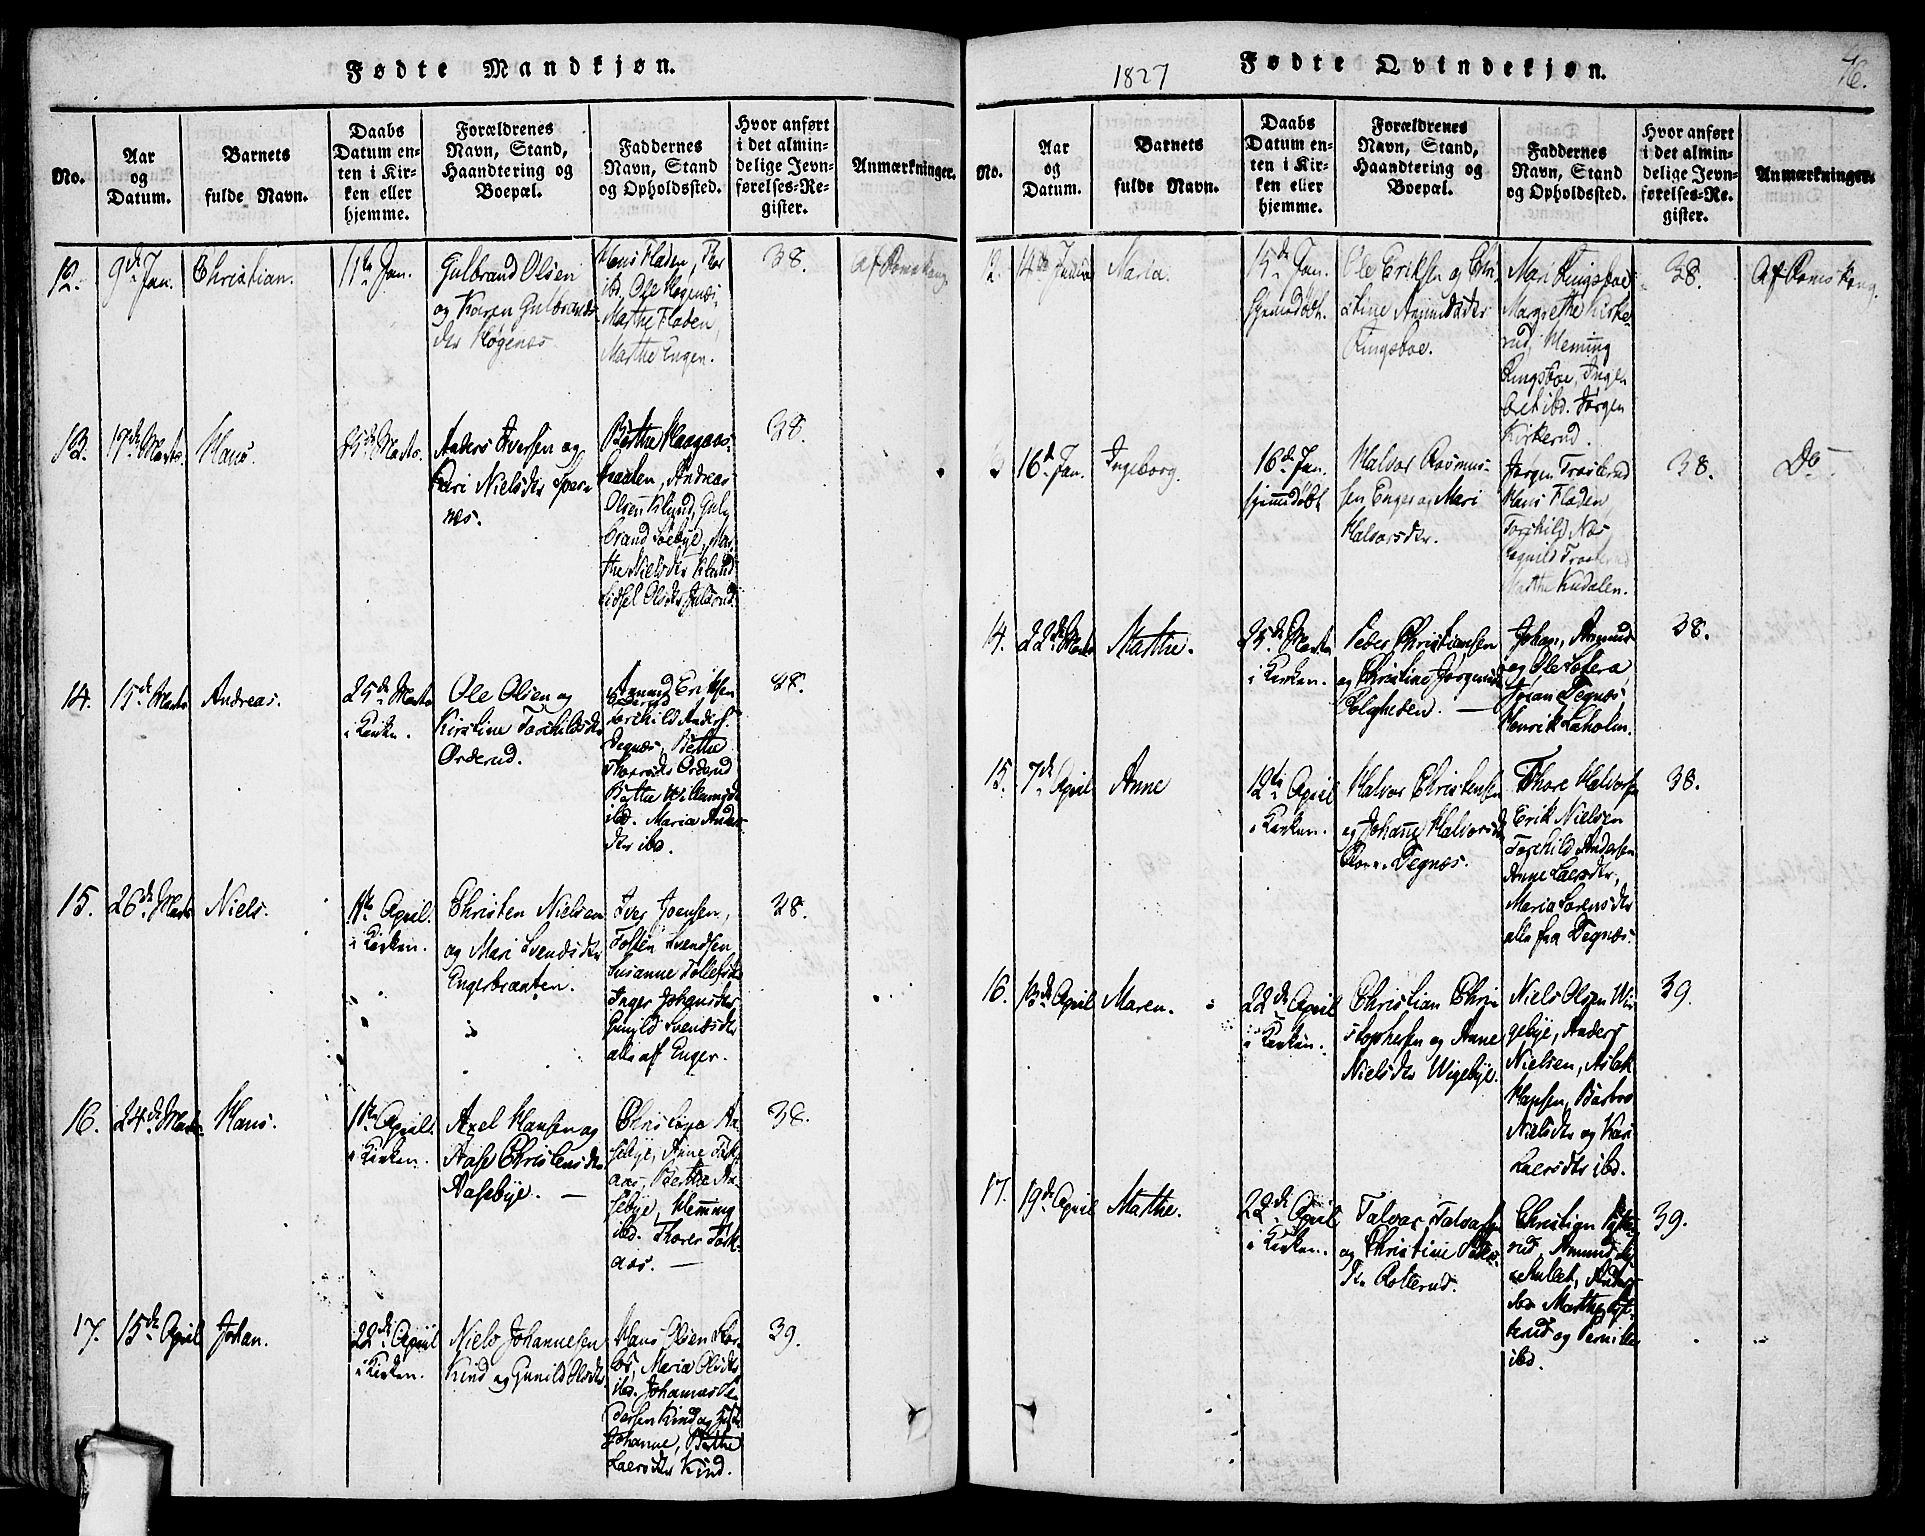 Fødte Mandkjøn.
No.
Aar
og
Datum.
Barnets
fulde Navn.
Daabs
Datum en-
ten i Kir-
ken eller
hjemme.
Forældrenes
Navn, Stand,
Haandtering og
Boepæl.
Faddernes
Navn, Stand
og Opholdssted.
Hvor anført
i det almin-
delige Jevn-
førelses-Re-
gister.
Anmærkninger.
12.
9de Jan.
Christian.
11te Jan.
Gulbrand Olsen
og Karen Gulbrands-
der Høgenæs
Hans Fladen, Per
ibd. Ole Høgenæs,
Marthe Fladen,
Marthe Engen.
38.
Af Romskoug
13.
17de Marts.
Hans.
25de Marts.
Anders Iversen og
Kari Nielsder
næs.
Berthe Haagaas-
braaten, Andreas
Olsen Klund, Gul-
brand Soebye, Mar-
the Nielsder Klund
Sidsel Olsder
38.
14.
15de Marts
Andreas.
25de Marts
i Kirken.
Ole Olsen og
Kirstine Torkildsder
Orderud.
Amund Eriksen
Orderud
Torkild Anders.
Tegnæs, Berthe
Orderud
Berthe
ibd. Maria Anders
der ibd.
38.
15.
26de Marts
Niels.
1ste April.
i Kirken.
Christen Nielsen
og Mari Svendsder
Engerbraaten.
Iver Joensen,
Tosten Svendsen
Susanne Tollefsder
Inger Johansder
Gunild Svendsder
alle af Enger.
38.
16.
24de Marts
Hans.
1ste April.
i Kirken.
Axel Hansen og
Aase Christensder
Aasebye. —
Christine Aa-
sebye, Anne Fosk-
aas, Berthe Aa-
sebye, Hemming
ibd. Thorer Fosk-
aas. —
38.
17.
15de April
Johan.
22de April
i Kirken.
Niels Johannesen
Kind og Gunild Olsder
Hans Olsen
Maria Olsder
ibd. Johannes
dersen Kind og
Johanne, Berthe
Laersder Kind.
39.
1827
Fødte Qvindekjøn.
76.
No.
Aar
og
Datum.
Barnets
fulde Navn.
Daabs
Datum en-
ten i Kir-
ken eller
hjemme.
Forældrenes
Navn, Stand,
Haandtering og
Boepæl.
Faddernes
Navn, Stand
og Opholdssted.
Hvor anført
i det almin-
delige Jevn-
førelses-Re-
gister.
Anmærkninger.
12.
14de Janua
Maria.
15de Jan.
hjemedøbt.
Ole Eriksen og Chri-
stine Amundsder
Ringsboe.
Mari Ringsboe
Margrethe Kirke-
rud, Heming
Ringsboe, Inge-
bret ibd. Jørgen
Kirkerud.
38.
Af Romskoug.
16de Jan.
Ingeborg.
16de Jan.
hjemmedøbt
Halvor Rasmus-
sen Enger og Mari
Halvorsder.
Jørgen Trosterud
Hans Fladen,
Torkild Næs
Ragnild Trosterud
Marthe Kudalen.
38.
Do
14.
22de Marts
Marthe.
25de Marts
i Kirken.
Peder Christiansen
og Christine Jørgensder
Bolgheden. —
Johan, Amund
og Ole
Joran Tegnæs
Henrik Laholm.
38.
15.
7de April
Anne
12te April
i Kirken.
Halvor Christensen
og Johanne Halvorsd.
Tegnæs.
Thore Halvorsen
Erik Nielsen
Torkild Andersen
Anne Laersder,
Maria Sørensder
alle fra Tegnæs.
38.
16.
13de April
Maren.
22de April
i Kirken.
Christian Chri-
stophersen og Anne
Nielsder Wigebye.
Niels Olsen Wi-
gebye, Anders
Nielsen, Aslak
Hansen, Barbro
Nielsder og Kari
Laersder ibd.
39.
17.
19de April
Marthe.
22de April
i Kirken.
Talvor Talvorsen
og Christine Peders-
der Rotterud.
Christian
rud, Amund
Anders
ibd. Marthe
rud og Pernille
ibd.
39.